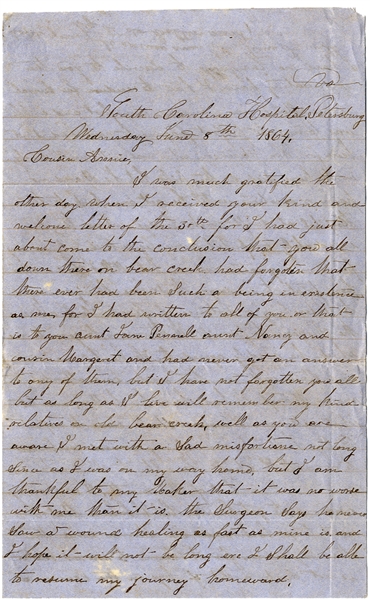 Va
South Carolina Hospital, Petersburg
Wednesday June 8th 1864.
Cousin
I was much gratified the
other day when I received your kind and
welcome letter of the 30th for I had just
about come to the conclusion that you all
down there on bear creek had forgoten that
there ever had been such a being in existence
as me, for I had written to all of you or that
is to you aunt Fam aunt Nancy and
cousin Margaret and had never got an answer
to any of them, but I have not forgotten you all
but as long as I live will remember my kind
relatives on old bear creek, well as you are
aware I met with a sad misfortune not long
since as I was on my way home, but I am
thankful to my Maker that it was no worse
with me than it is, the Surgeon says he never
saw a wound healing as fast as mine is and
I hope it will not be long ere I shall be able
to resume my journey homeward.